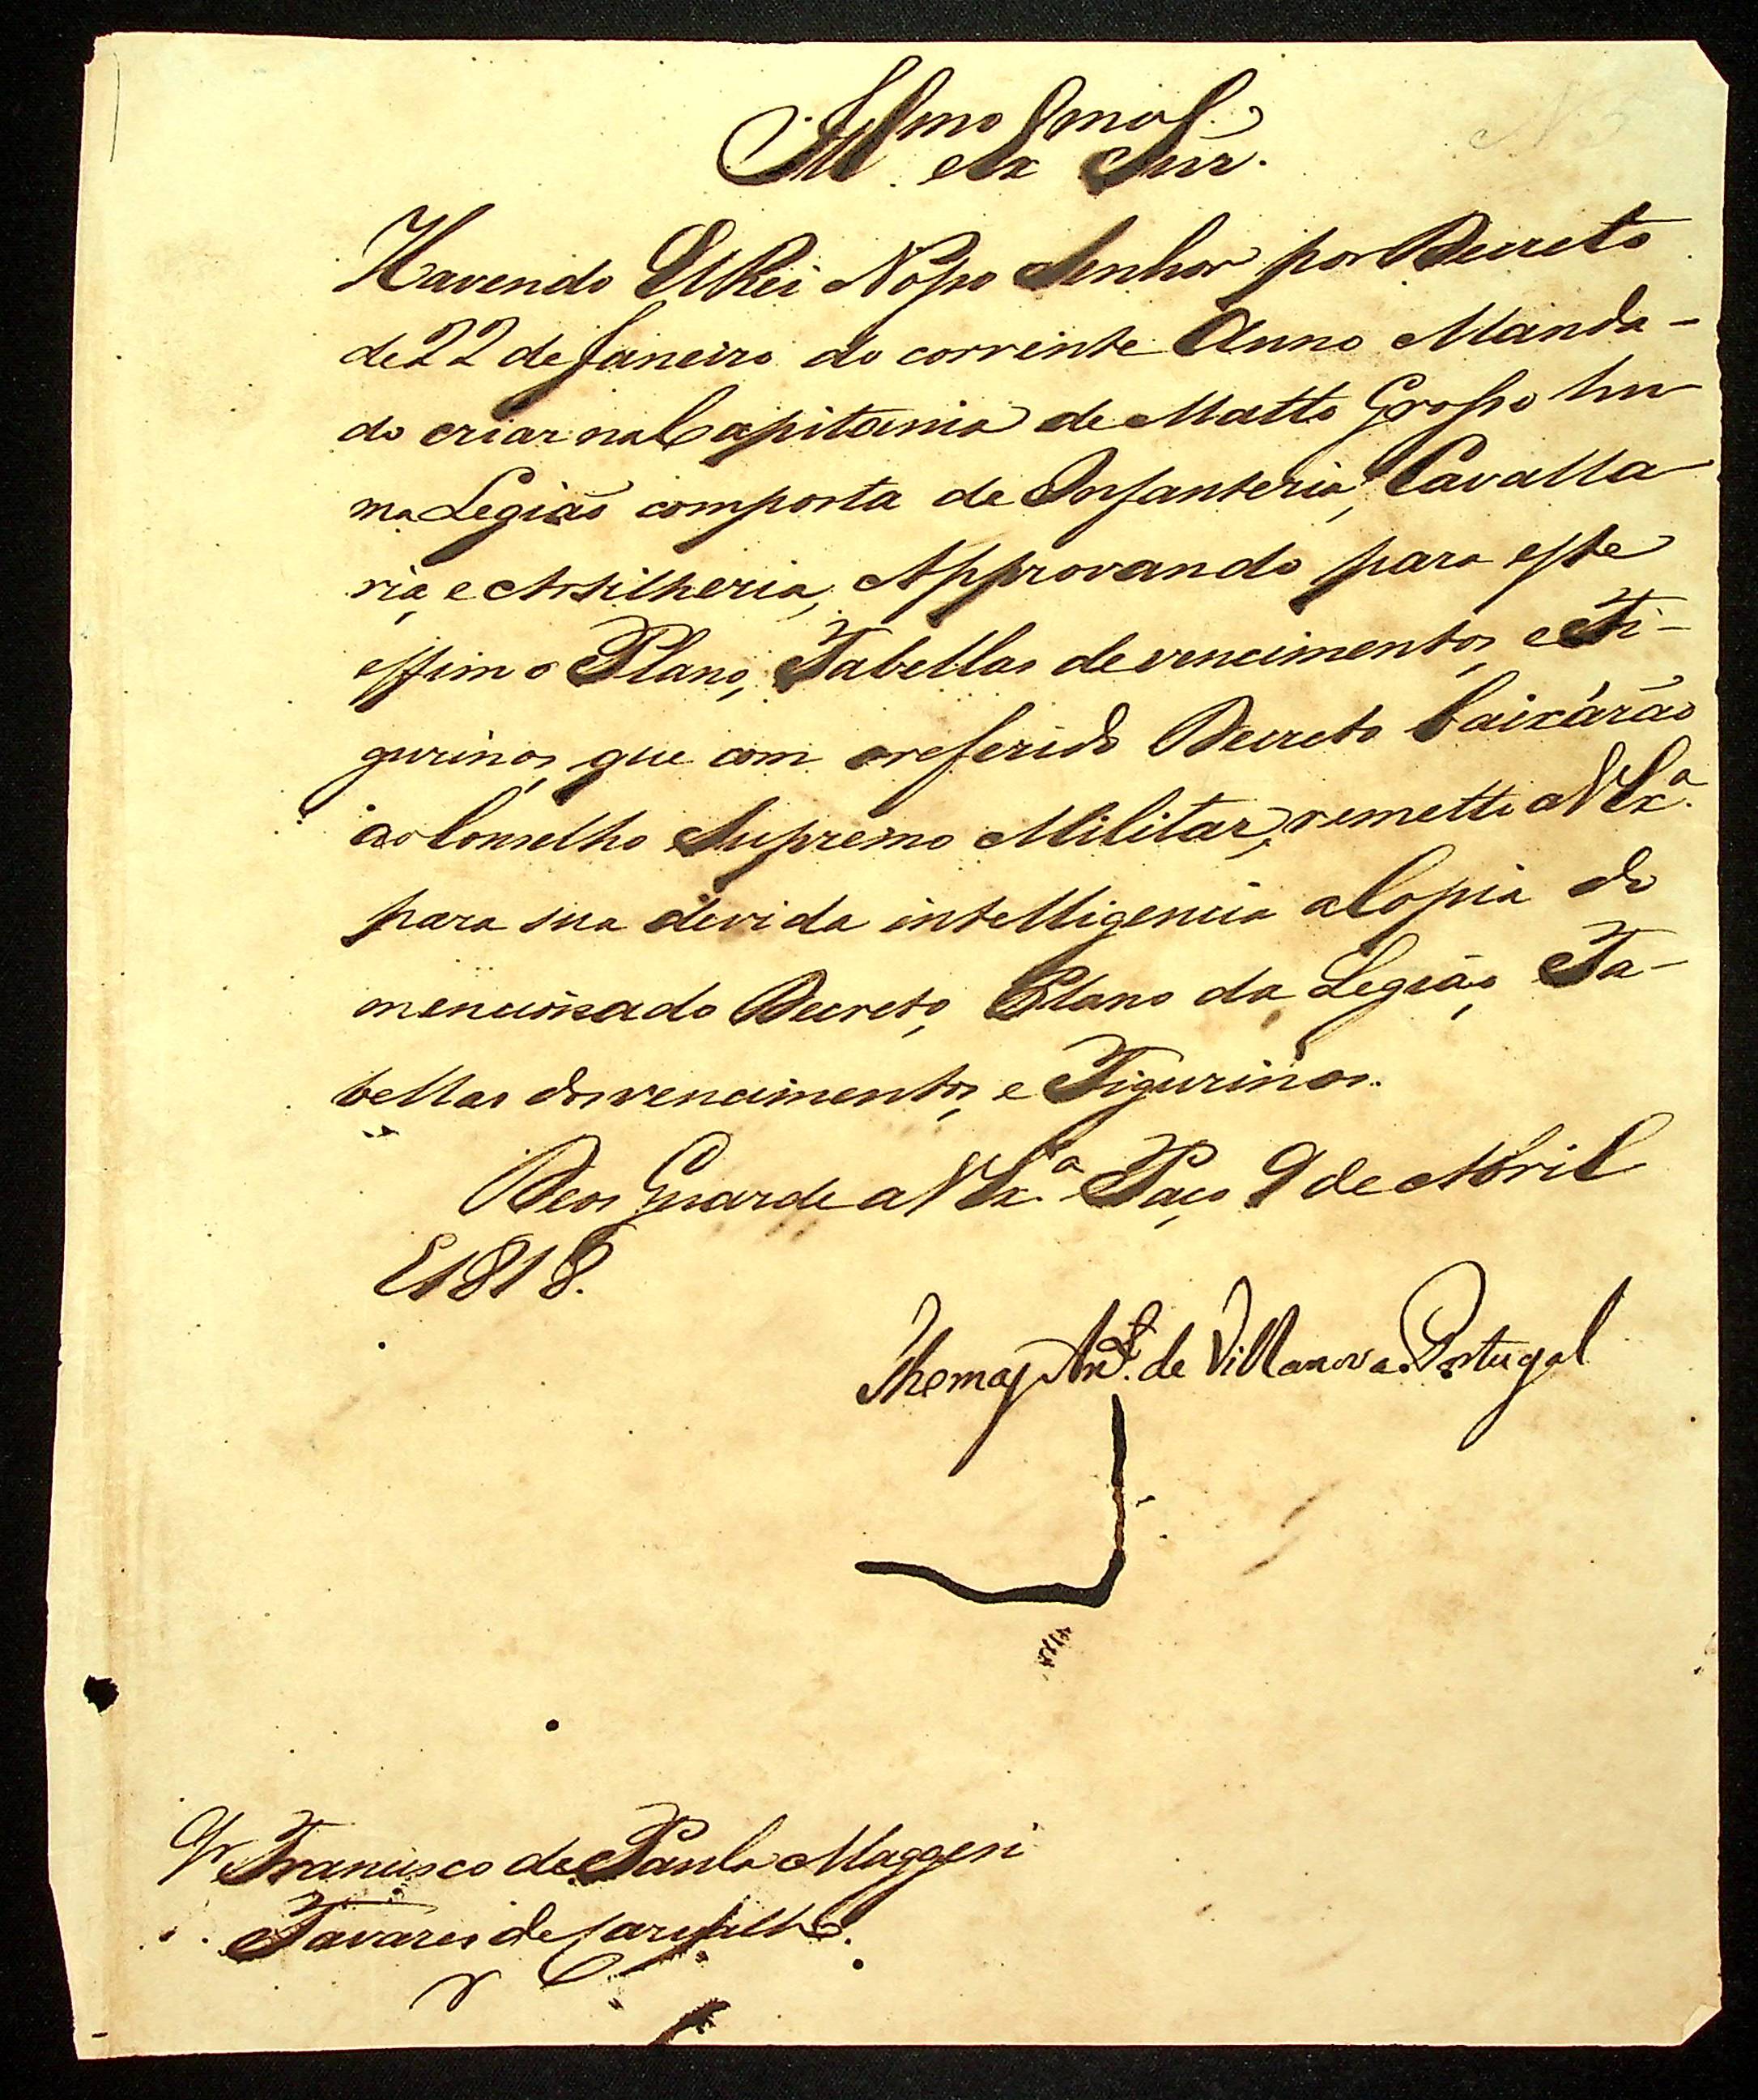 Ill.mo e Ex.mo Snr.
Havendo ElRei Nosso Senhor por Decreto
de 22 de Janeiro do corrente Anno Manda-
do criar na Capitania de Matto Grosso hu
ma Legião composta de Infanteria, Cavalla
ria, e Artilheria, Approvando para esse
effim o Plano, Tabellas de vencimentos, e Fi-
gurinos, que com o referido Decreto baixárão
ao Conselho Supremo Militar, remetto a V Ex.a
para sua devida intelligencia a Copia do
mencionado Decreto, Plano da Legião, Ta-
bellas dos vencimentos, e Figurinos.
Deos Guarde a V Ex.a Paço 9 de Abril
1818.
Thomaz Ant.o de Villanova Portugal
Sr Francisco de Paula Maggesi
Tavares de Carvalho.